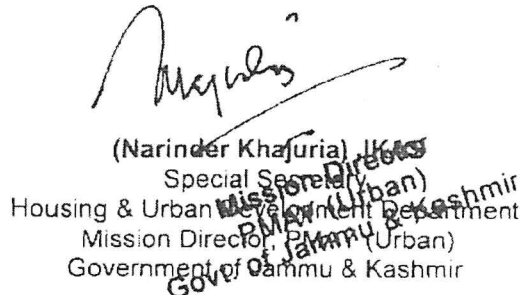 (Narinder Khajuria), JKAS
Special Secretary
Housing & Urban Development Department
Mission Director, PMAY (Urban)
Government of Jammu & Kashmir
Mission Director
PMAY (Urban)
Govt. of Jammu & Kashmir